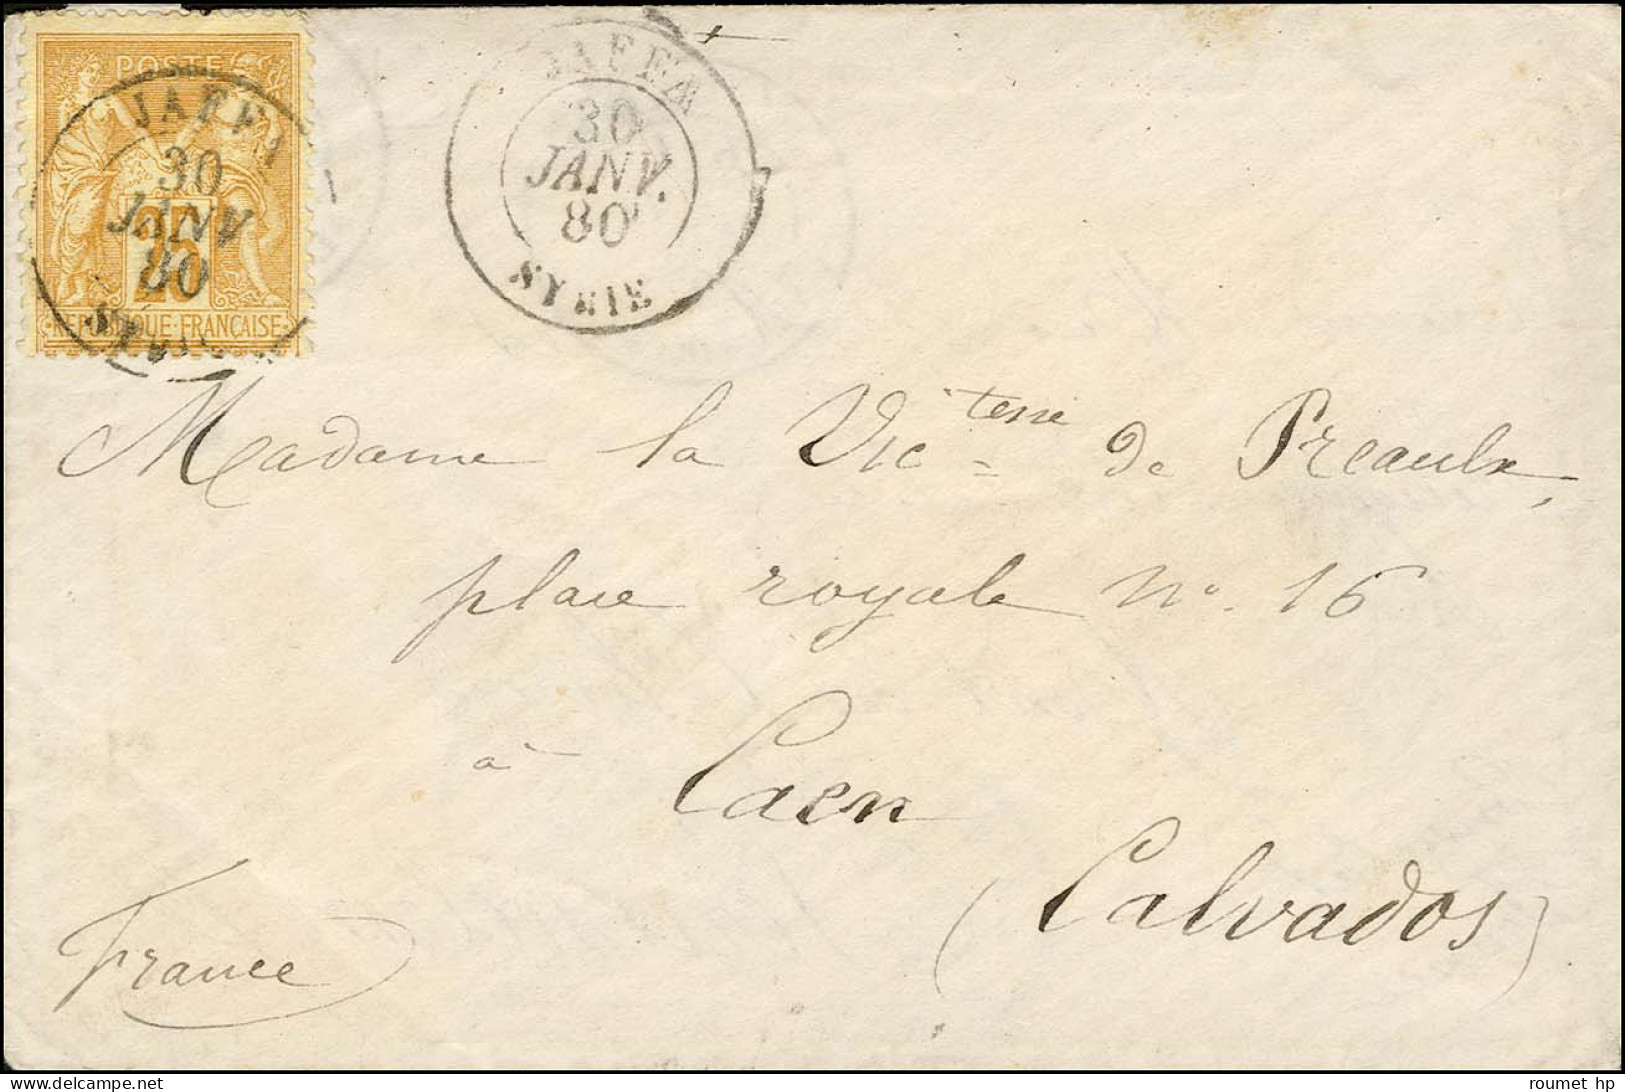 POSTE
JAFFA
30
JANV
80
25
REPUBLIQUE FRANÇAISE
SYRIE
JAFFA
30
JANV.
80
SYRIE
Madame la Vic^tesse de Preaulx,
place royale N°. 16
à Caen
(Calvados)
France
roumet hp